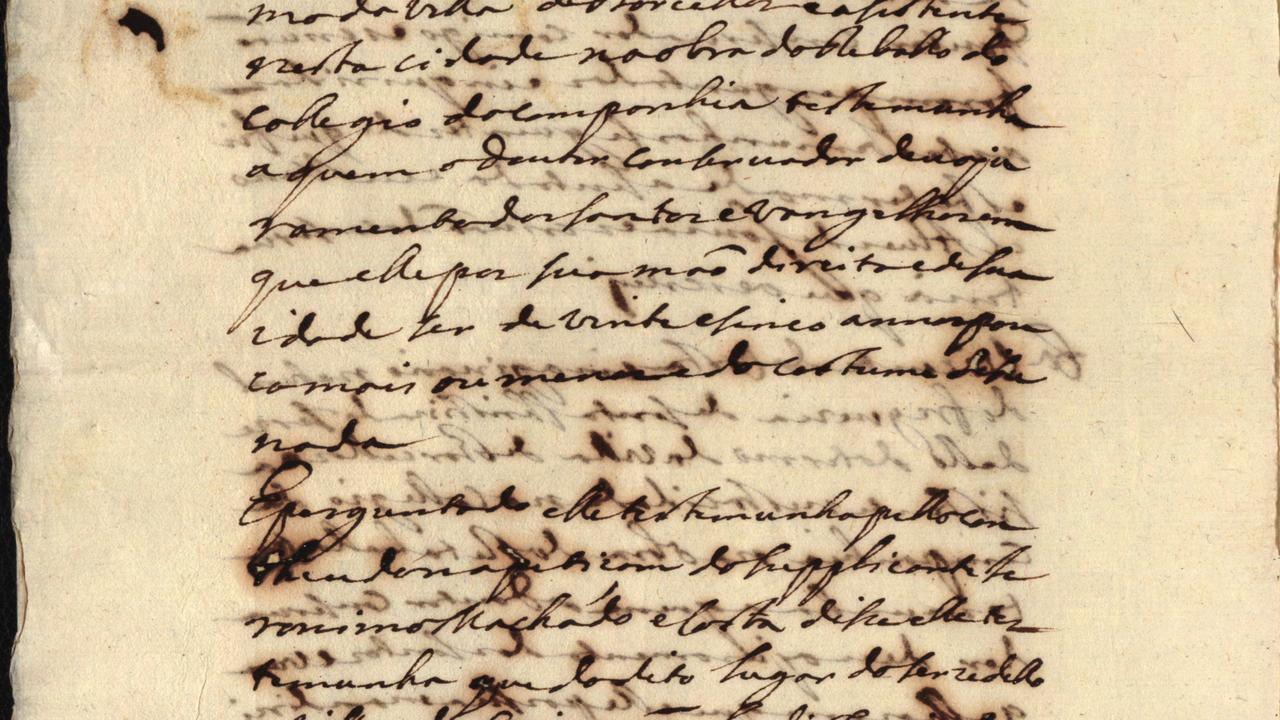 mo da villa de Barcellos e asistente
nesta cidade na obra do Reballo do
Collegio da companhia testemunha
a quem o doutor conseruador deu o ju
ramento dos santos e Vangelhos em
que elle pos sua maõ direita e de sua
idade ser de vinte e sinco annos pou
co mais ou menos e do costume dise
nada
E perguntado elle testemunha pello con
theudo na peticam do supplicante Je
ronimo Machado e Costa dise elle tes
temunha que do dito lugar do